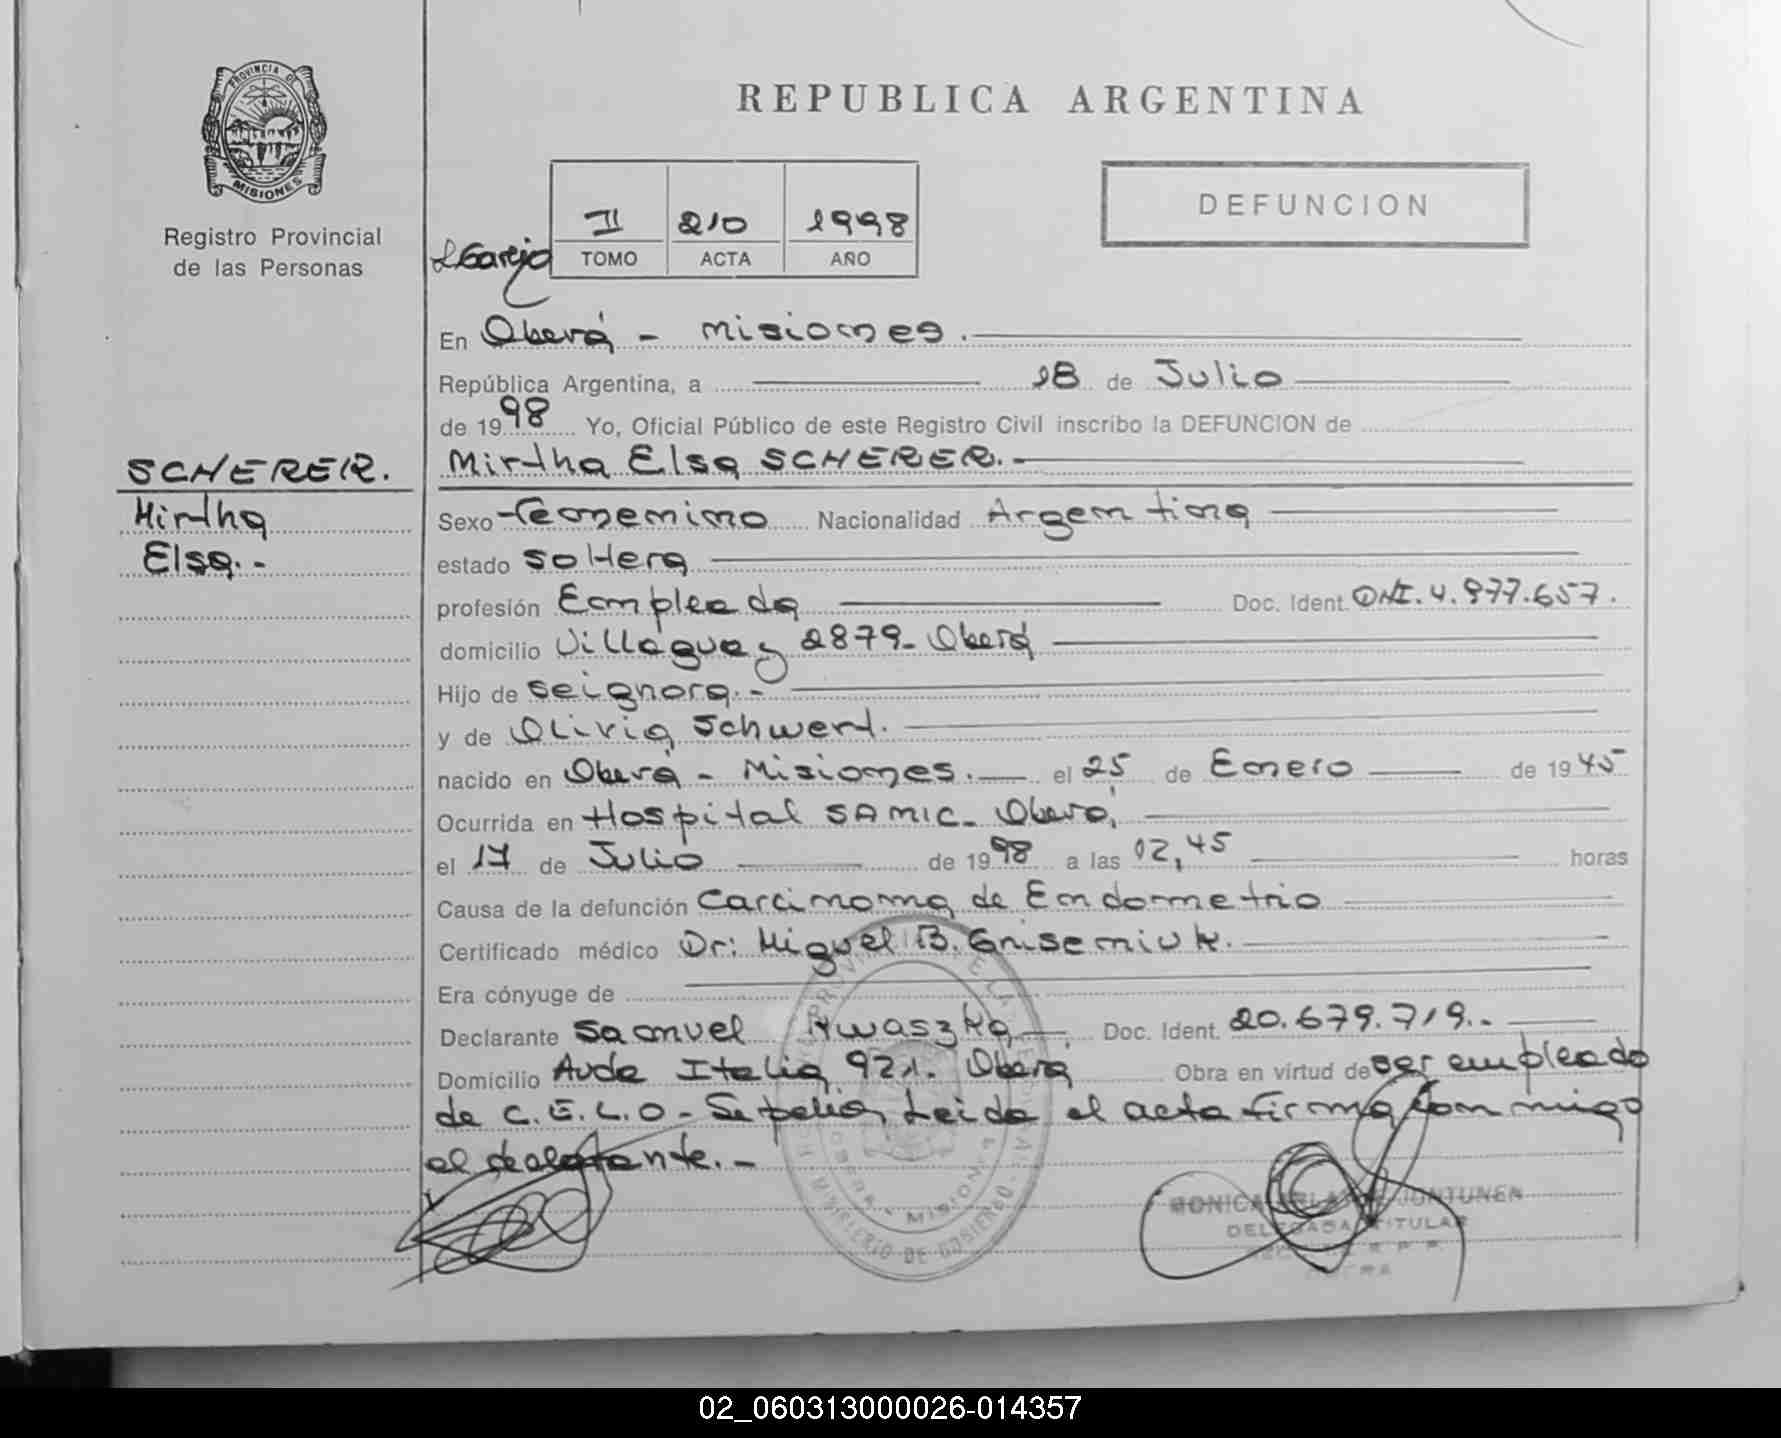 REPUBLICA ARGENTINA
PROVINCIA DE
MISIONES
Registro Provincial
de las Personas
DEFUNCION
II 210 1998
TOMO ACTA AÑO
En Oberá - Misiones.
República Argentina, a 18 de Julio
de 1998 Yo, Oficial Público de este Registro Civil inscribo la DEFUNCION de
SCHERER.
Mirtha
Elsa.-
Mirtha Elsa SCHERER.-
Sexo Femenino Nacionalidad Argentina
estado soltera
profesión Empleada Doc. Ident. DNI. 4.977.657.
domicilio Villaguay 2879- Oberá
Hijo de seignora.-
y de Olivia Schwert.
nacido en Oberá - Misiones. el 25 de Enero de 1945
Ocurrida en Hospital SAMIC- Oberá,
el 17 de Julio de 1998 a las 12,45 horas
Causa de la defunción Carcinoma de Endometrio
Certificado médico Dr: Miguel B. Griseniuk.
Era cónyuge de
Declarante Samuel Iwaszka Doc. Ident. 20.679.719.-
Domicilio Avda Italia 921. Oberá Obra en virtud de ser empleado
de C.E.L.O - Sepelio, Leida el acta firma conmigo
el declarante.-
MINISTERIO DE GOBIERNO
OBERA - MISIONES
MONICA JUNTUNEN
DELEGADA TITULAR
02_060313000026-014357